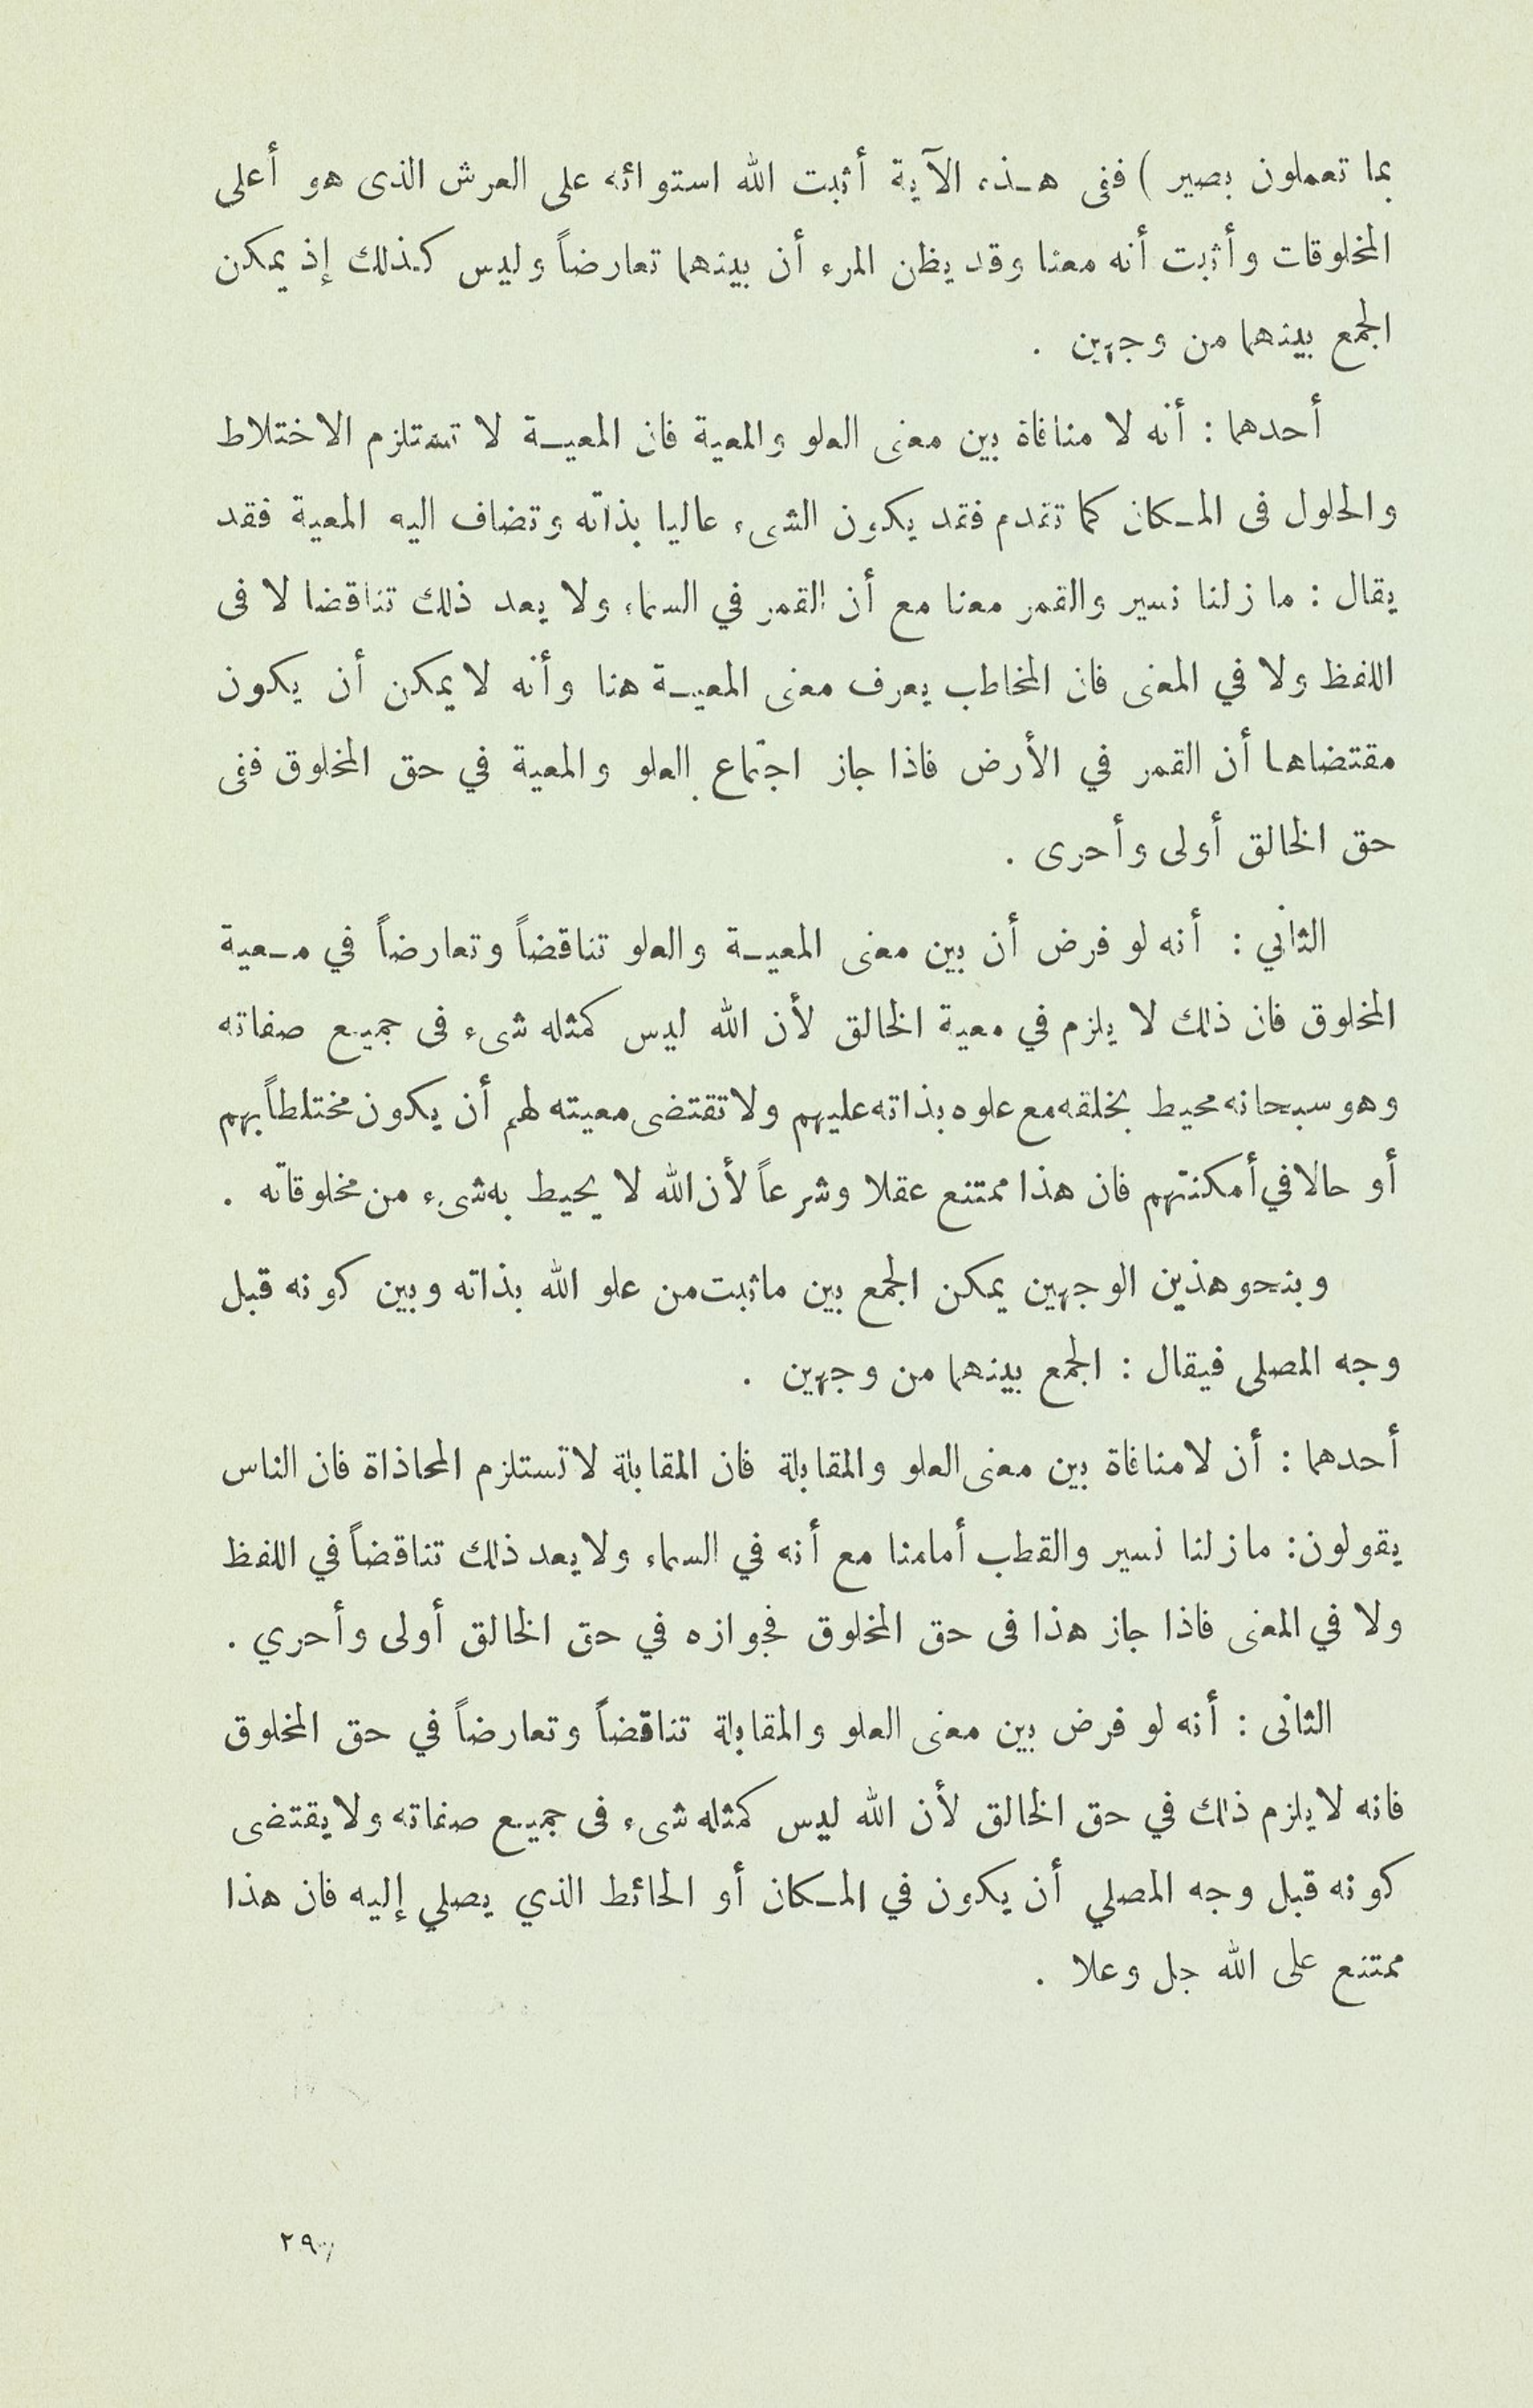 بما تعملون بصير ) ففى هـذه الآية أثبت الله استوائه على العرش الذى هو أعلى
المخلوقات وأثبت أنه معنا وقد يظن المرء أن بينهما تعارضاً وليس كذلك إذ يمكن
الجمع بينهما من وجهين .
أحدهما : أنه لا منافاة بين معنى العلو والمعية فان المعيـة لا تستلزم الاختلاط
والحلول فى المـكان كما تقدم فقد يكون الشىء عاليا بذاته وتضاف اليه المعية فقد
يقال : ما زلنا نسير والقمر معنا مع أن القمر في السماء ولا يعد ذلك تناقضا لا فى
اللفظ ولا في المعنى فان المخاطب يعرف معنى المعيـة هنا وأنه لا يمكن أن يكون
مقتضاها أن القمر في الأرض فاذا جاز اجتماع العلو والمعية في حق المخلوق ففى
حق الخالق أولى وأحرى .
الثاني : أنه لو فرض أن بين معنى المعيـة والعلو تناقضاً وتعارضاً في مـعية
المخلوق فان ذلك لا يلزم في معية الخالق لأن الله ليس كمثله شىء فى جميع صفاته
وهو سبحانه محيط بخلقه مع علوه بذاته عليهم ولا تقتضى معيته لهم أن يكون مختلطاً بهم
أو حالا في أمكنتهم فان هذا ممتنع عقلا وشرعاً لأن الله لا يحيط به شىء من مخلوقاته .
وبنحو هذين الوجهين يمكن الجمع بين ماثبت من علو الله بذاته وبين كونه قبل
وجه المصلى فيقال : الجمع بينهما من وجهين .
أحدهما : أن لا منافاة بين معنى العلو والمقابلة فان المقابلة لا تستلزم المحاذاة فان الناس
يقولون: ما زلنا نسير والقطب أمامنا مع أنه في السماء ولا يعد ذلك تناقضاً في اللفظ
ولا في المعنى فاذا جاز هذا فى حق المخلوق فجوازه في حق الخالق أولى وأحري .
الثانى : أنه لو فرض بين معنى العلو والمقابلة تناقضاً وتعارضاً في حق المخلوق
فانه لا يلزم ذلك في حق الخالق لأن الله ليس كمثله شىء فى جميع صفاته ولا يقتضى
كونه قبل وجه المصلي أن يكون في المـكان أو الحائط الذي يصلي إليه فان هذا
ممتنع على الله جل وعلا .
٢٩